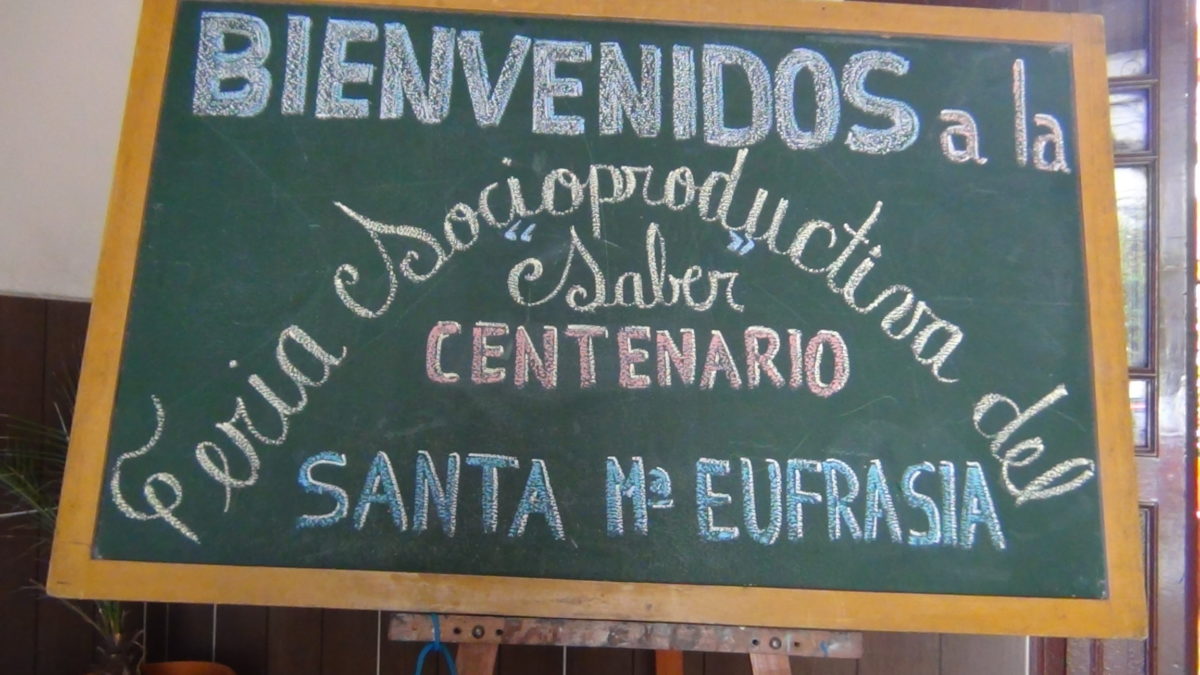 BIENVENIDOS a la
Feria Socioproductiva del
"Saber"
CENTENARIO
SANTA Mª EUFRASIA